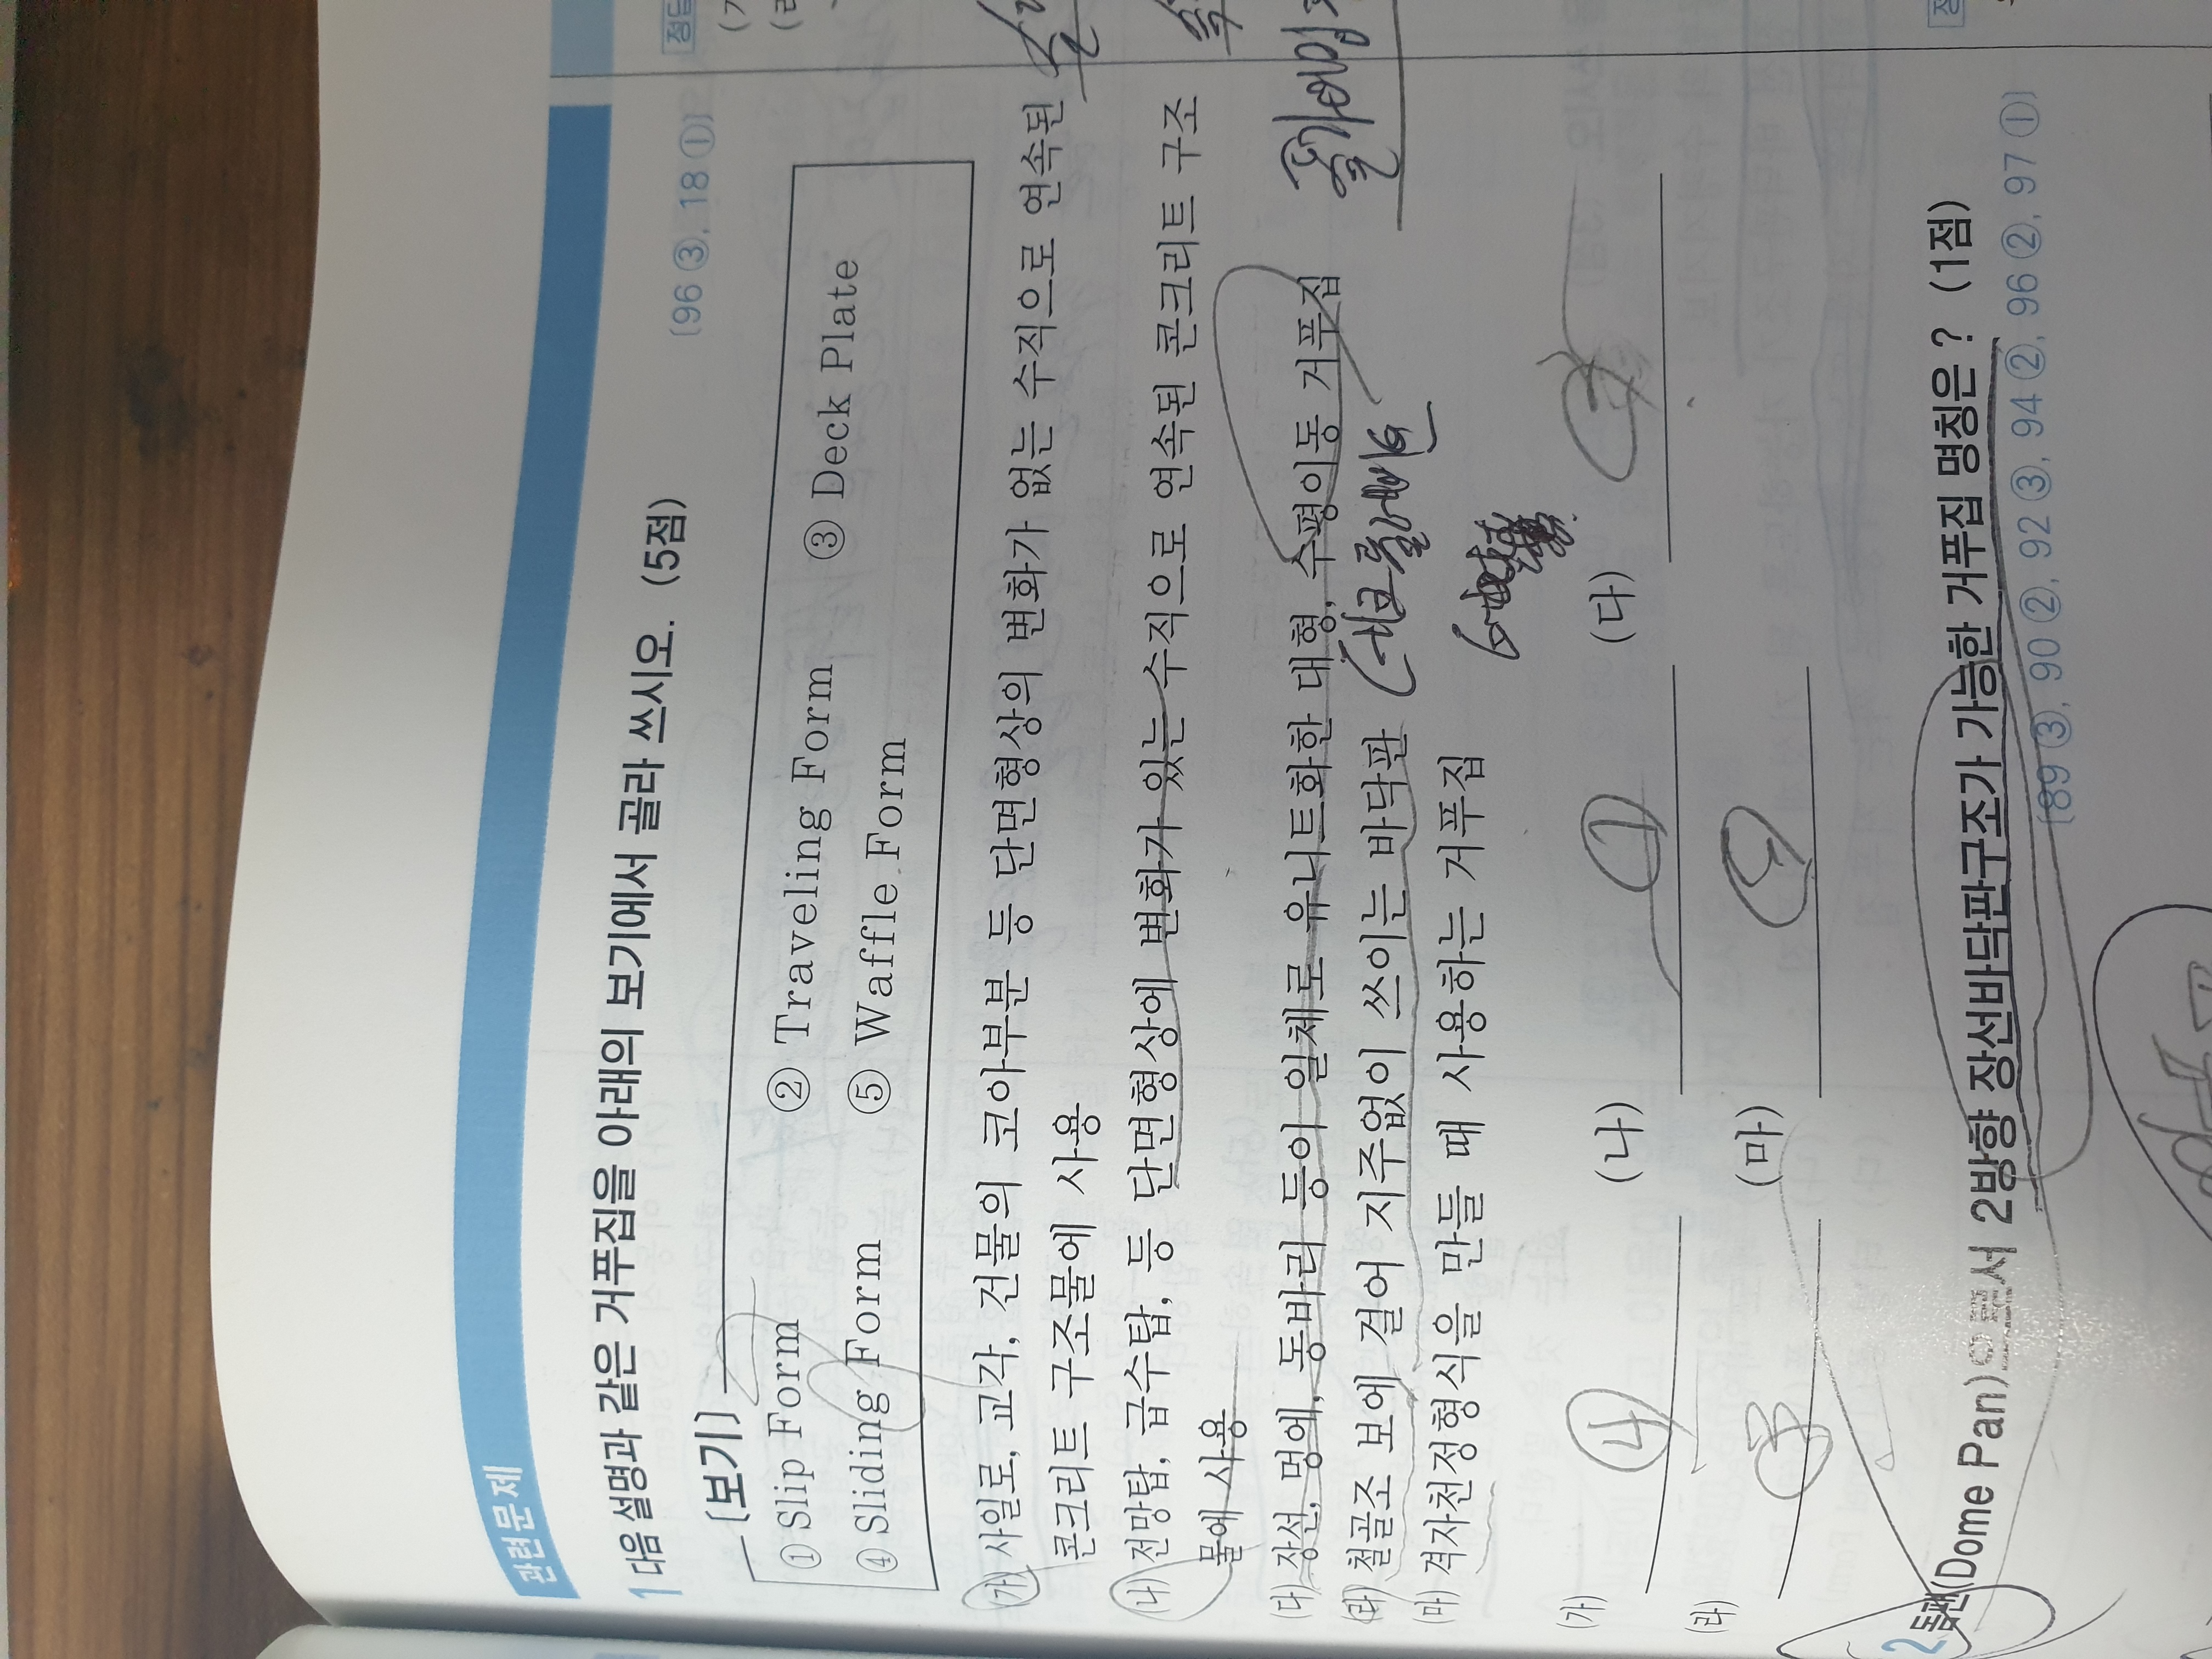 관련문제
1 다음 설명과 같은 거푸집을 아래의 보기에서 골라 쓰시오. (5점)
(96 ③, 18 ①)
[보기]
① Slip Form ② Traveling Form ③ Deck Plate
④ Sliding Form ⑤ Waffle Form
(가) 사일로, 교각, 건물의 코아부분 등 단면형상의 변화가 없는 수직으로 연속된
콘크리트 구조물에 사용
(나) 전망탑, 급수탑, 등 단면형상에 변화가 있는 수직으로 연속된 콘크리트 구조
물에 사용
(다) 장선, 멍에, 동바리 등이 일체로 유니트화한 대형, 수평이동 거푸집
(라) 철골조 보에 걸어 지주없이 쓰이는 바닥판
(마) 격자천정형식을 만들 때 사용하는 거푸집
(가) ④ (나) ① (다)
(라) (마)
2 돔팬(Dome Pan)으로서 2방향 장선바닥판구조가 가능한 거푸집 명칭은? (1점)
(89 ③, 90 ②, 92 ③, 94 ②, 96 ②, 97 ①)
정답
(가
(라